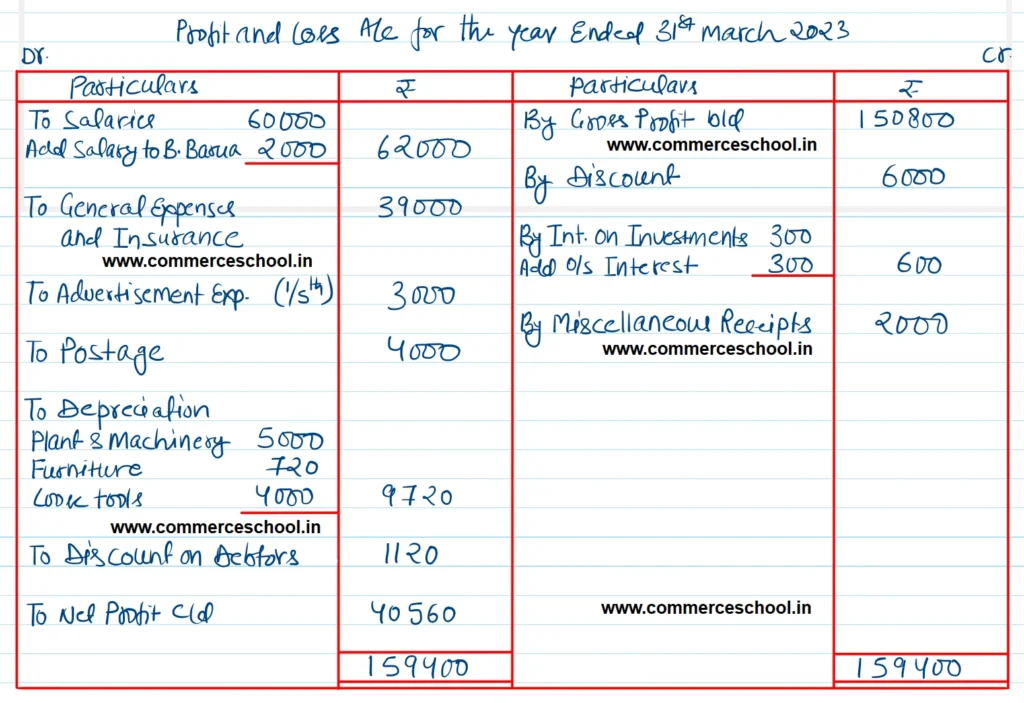 Profit and Loss A/c for the year Ended 31st March 2023
Dr.
Cr.
Particulars ₹ Particulars ₹
To Salaries 60000
Add Salary to B. Barua 2000 62000
To General Expenses 39000
and Insurance
www.commerceschool.in
To Advertisement Exp. (1/5th) 3000
To Postage 4000
To Depreciation
Plant & Machinery 5000
Furniture 720
Loose tools 4000 9720
www.commerceschool.in
To Discount on Debtors 1120
To Net Profit C/d 40560
159400
By Gross Profit b/d 150800
www.commerceschool.in
By Discount 6000
By Int. on Investments 300
Add O/s Interest 300 600
By Miscellaneous Receipts 2000
www.commerceschool.in
www.commerceschool.in
159400